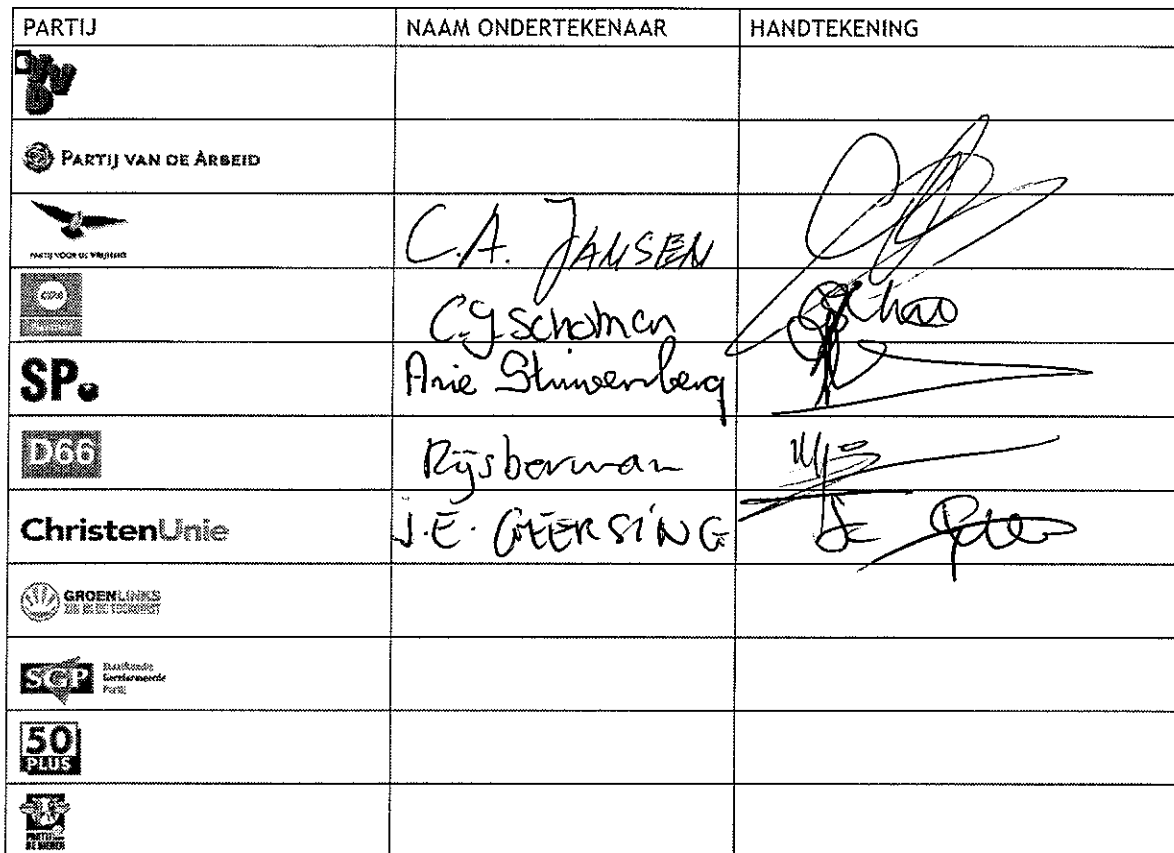 PARTIJ NAAM ONDERTEKENAAR HANDTEKENING
VVD
PARTIJ VAN DE ARBEID
PARTIJ VOOR DE VRIJHEID C.A. JANSEN
CDA C.J. Schoman
SP. Arie
D66 Rijsberman
ChristenUnie J.E. GEERSING
GROENLINKS
SGP Staatkundig
Gereformeerde
Partij
50
PLUS
PARTIJ